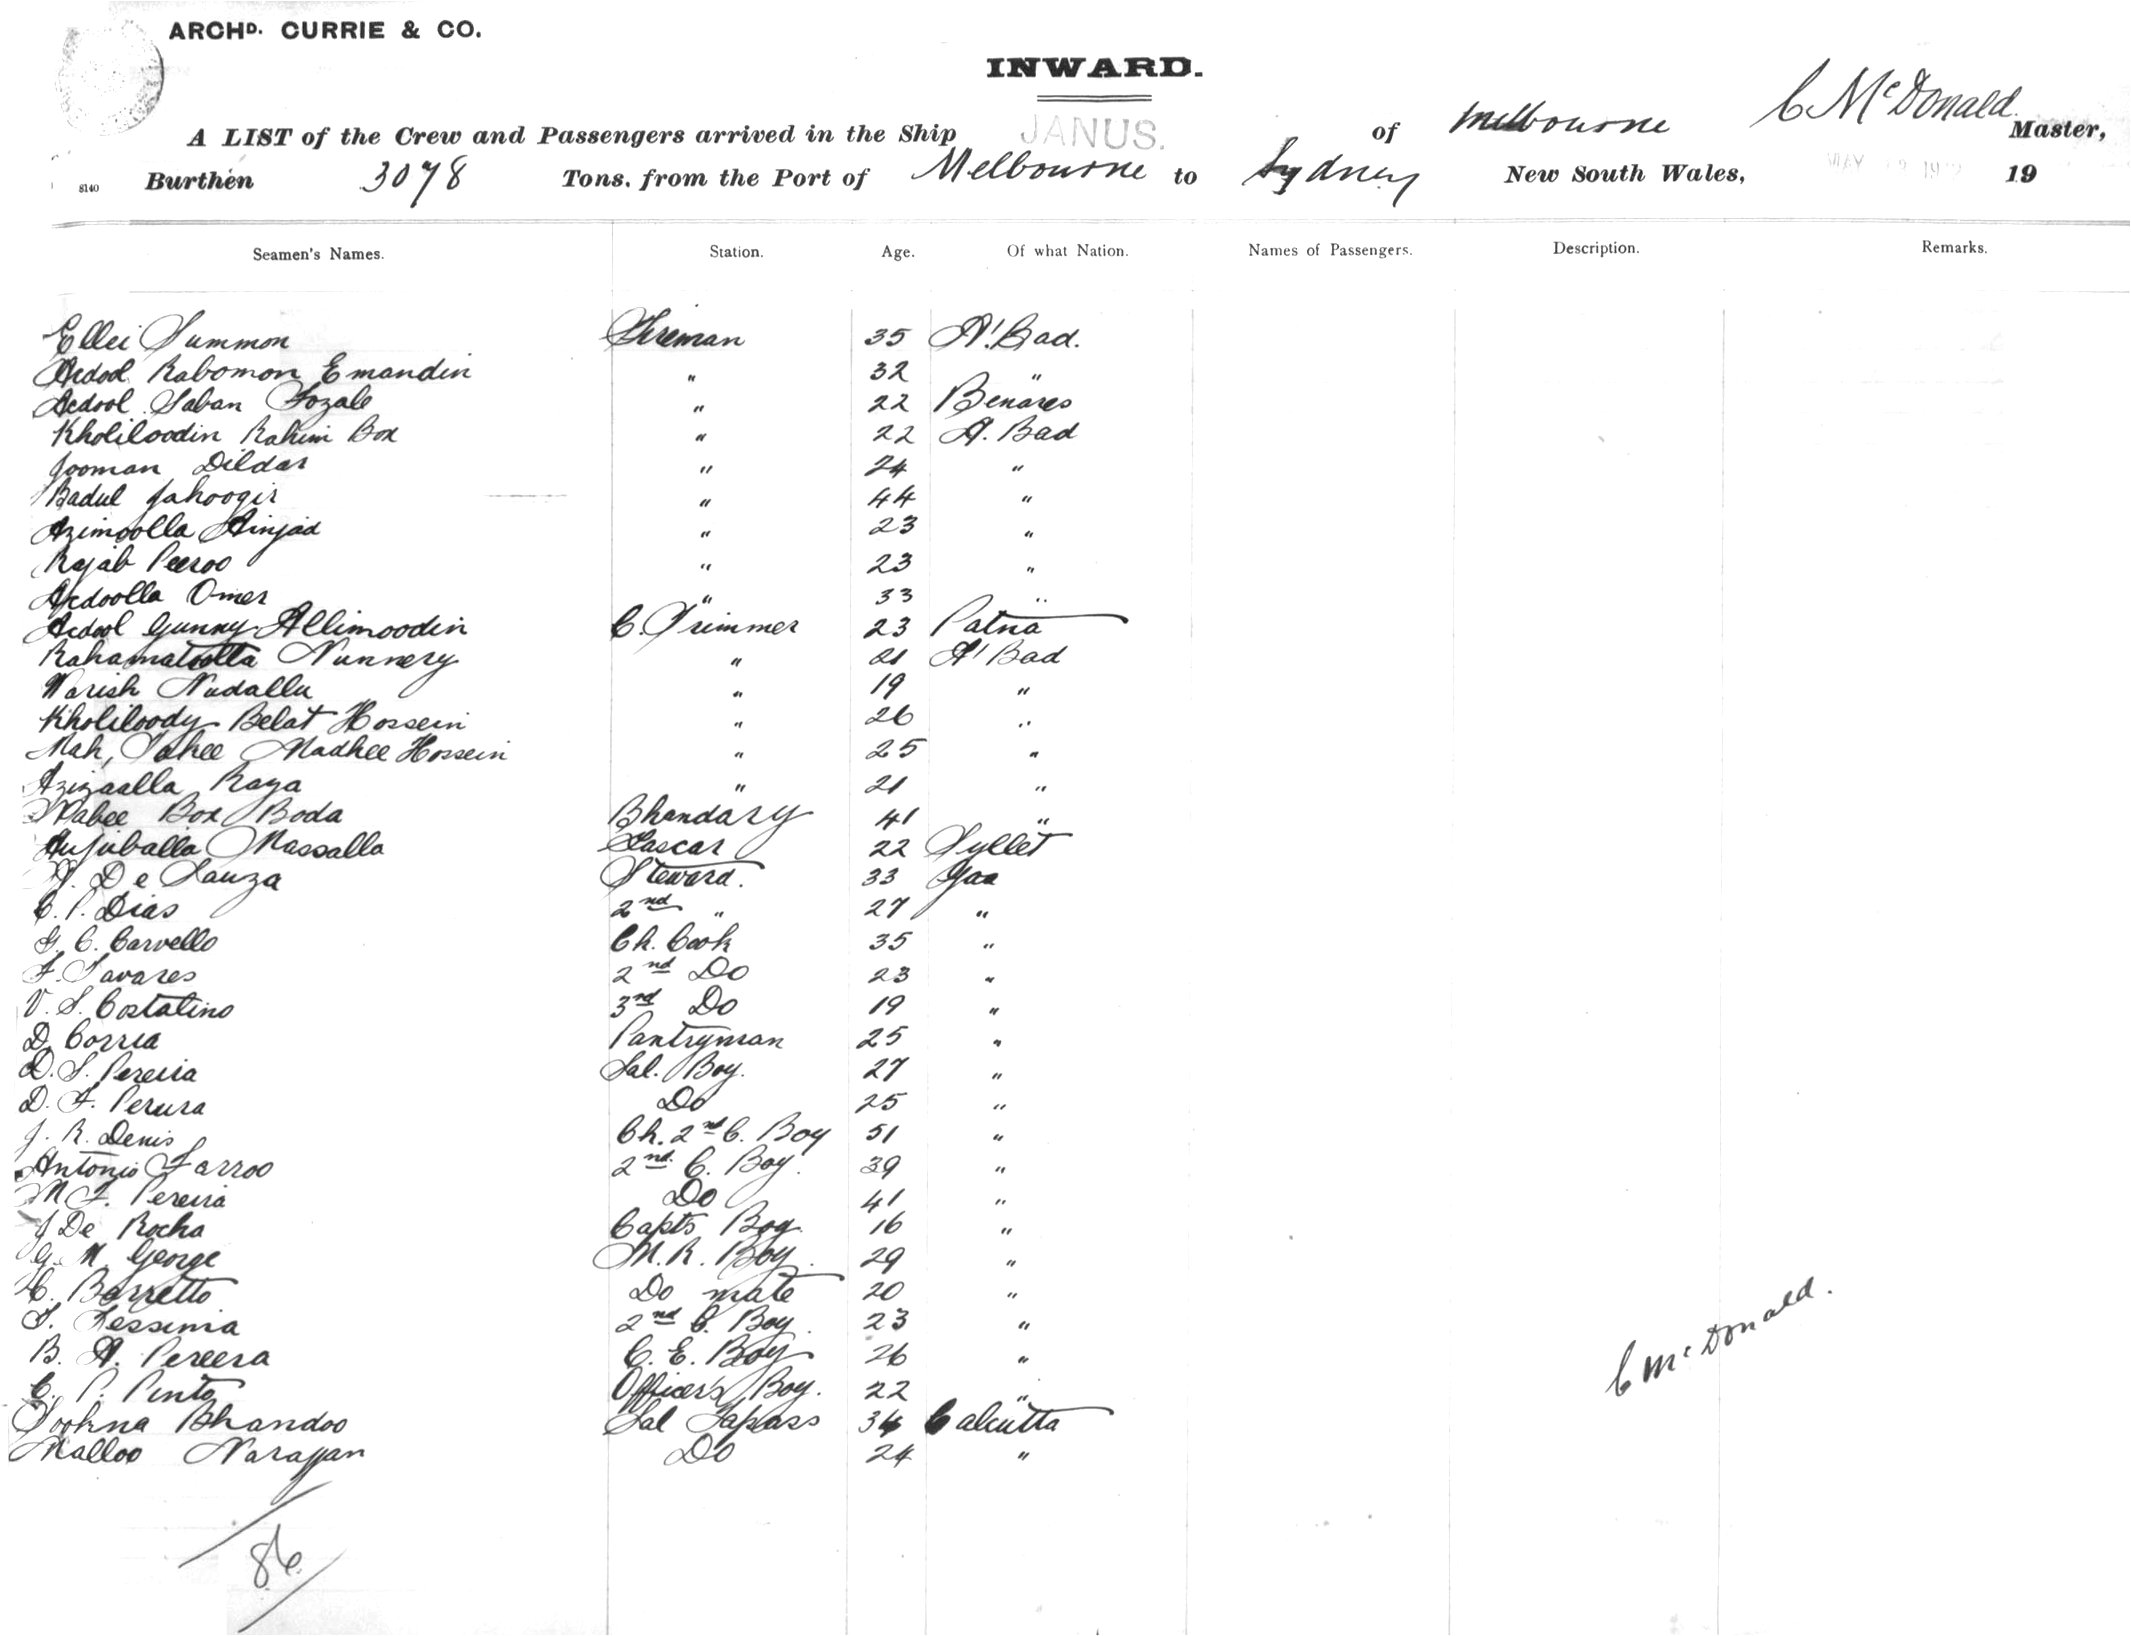 ARCHD. CURRIE & CO.
INWARD.
A LIST of the Crew and Passengers arrived in the Ship JANUS. of Melbourne C McDonald Master,
8140 Burthen 3078 Tons. from the Port of Melbourne to Sydney New South Wales, MAY 19
Seamen's Names. Station. Age. Of what Nation. Names of Passengers. Description. Remarks.
Ellei Summon Fireman 35 A'Bad.
Acdool Rabomon Emandin " 32 "
Acdool Saban Fozale " 22 Benares
Kholiloodin Rahim Box " 22 A. Bad
Jooman Dildar " 24 "
Badul Jahoogir " 44 "
Azimoolla Ainjad " 23 "
Rajab Peeroo " 23 "
Acdoolla Omer " 33 "
Acdool Gunny Allimoodin C. Trimmer 23 Patna
Rahamatoolla Nunnery " 21 A'Bad
Warish Nudallu " 19 "
Kholiloody Belat Hossein " 26 "
Mah, Tahee Madhee Hossein " 25 "
Azizaalla Raya " 21 "
Nabee Box Boda Bhandary 41 "
Aujuballa Massalla Lascar 22 Syllet
De Sauza Steward. 33 Goa
C. P. Dias 2nd " 27 "
G. C. Carvello Ch. Cook 35 "
F. Tavares 2nd Do 23 "
V. S. Costatino 3rd Do 19 "
D. Correa Pantryman 25 "
D. S. Pereira Sal. Boy. 27 "
D. F. Perura Do 25 "
J. R. Denis Ch. 2nd C. Boy 51 "
Antonio Farroo 2nd C. Boy. 39 "
M F. Pereira Do 41 "
J De Rocha Capts Boy. 16 "
G. M. George M. R. Boy. 29 "
C. Barretto Do mate 20 "
T. Fessinia 2nd C. Boy. 23 "
B. A. Pereera C. E. Boy 26 "
C. P. Pinto Officer's Boy. 22 "
Sookna Bhandoo Sal Topass 34 Calcutta
Malloo Narayan Do 24 "
C McDonald.
86